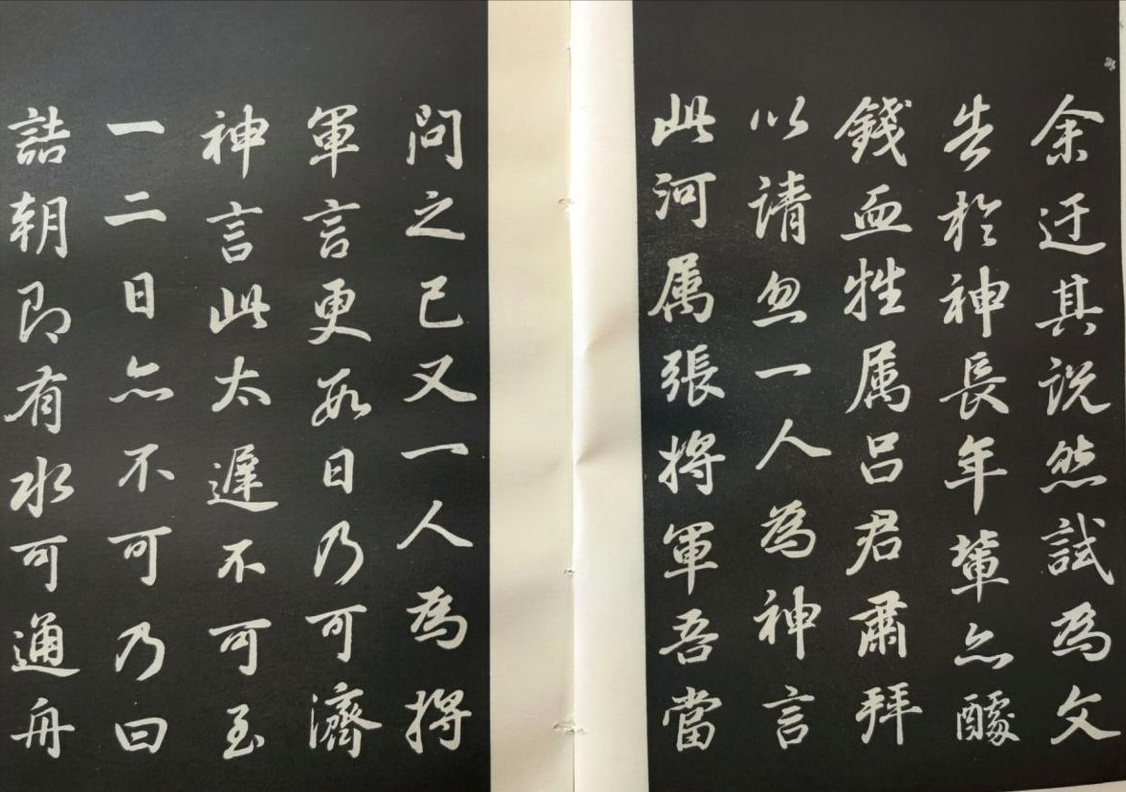 余迂其说然試為文
告於神長年輩亦醵
錢血牲属吕君肅拜
以请忽一人為神言
此河属張將軍吾當
問之已又一人為將
軍言更数日乃可濟
神言此太遲不可至
一二日亦不可乃曰
詰朝即有水可通舟